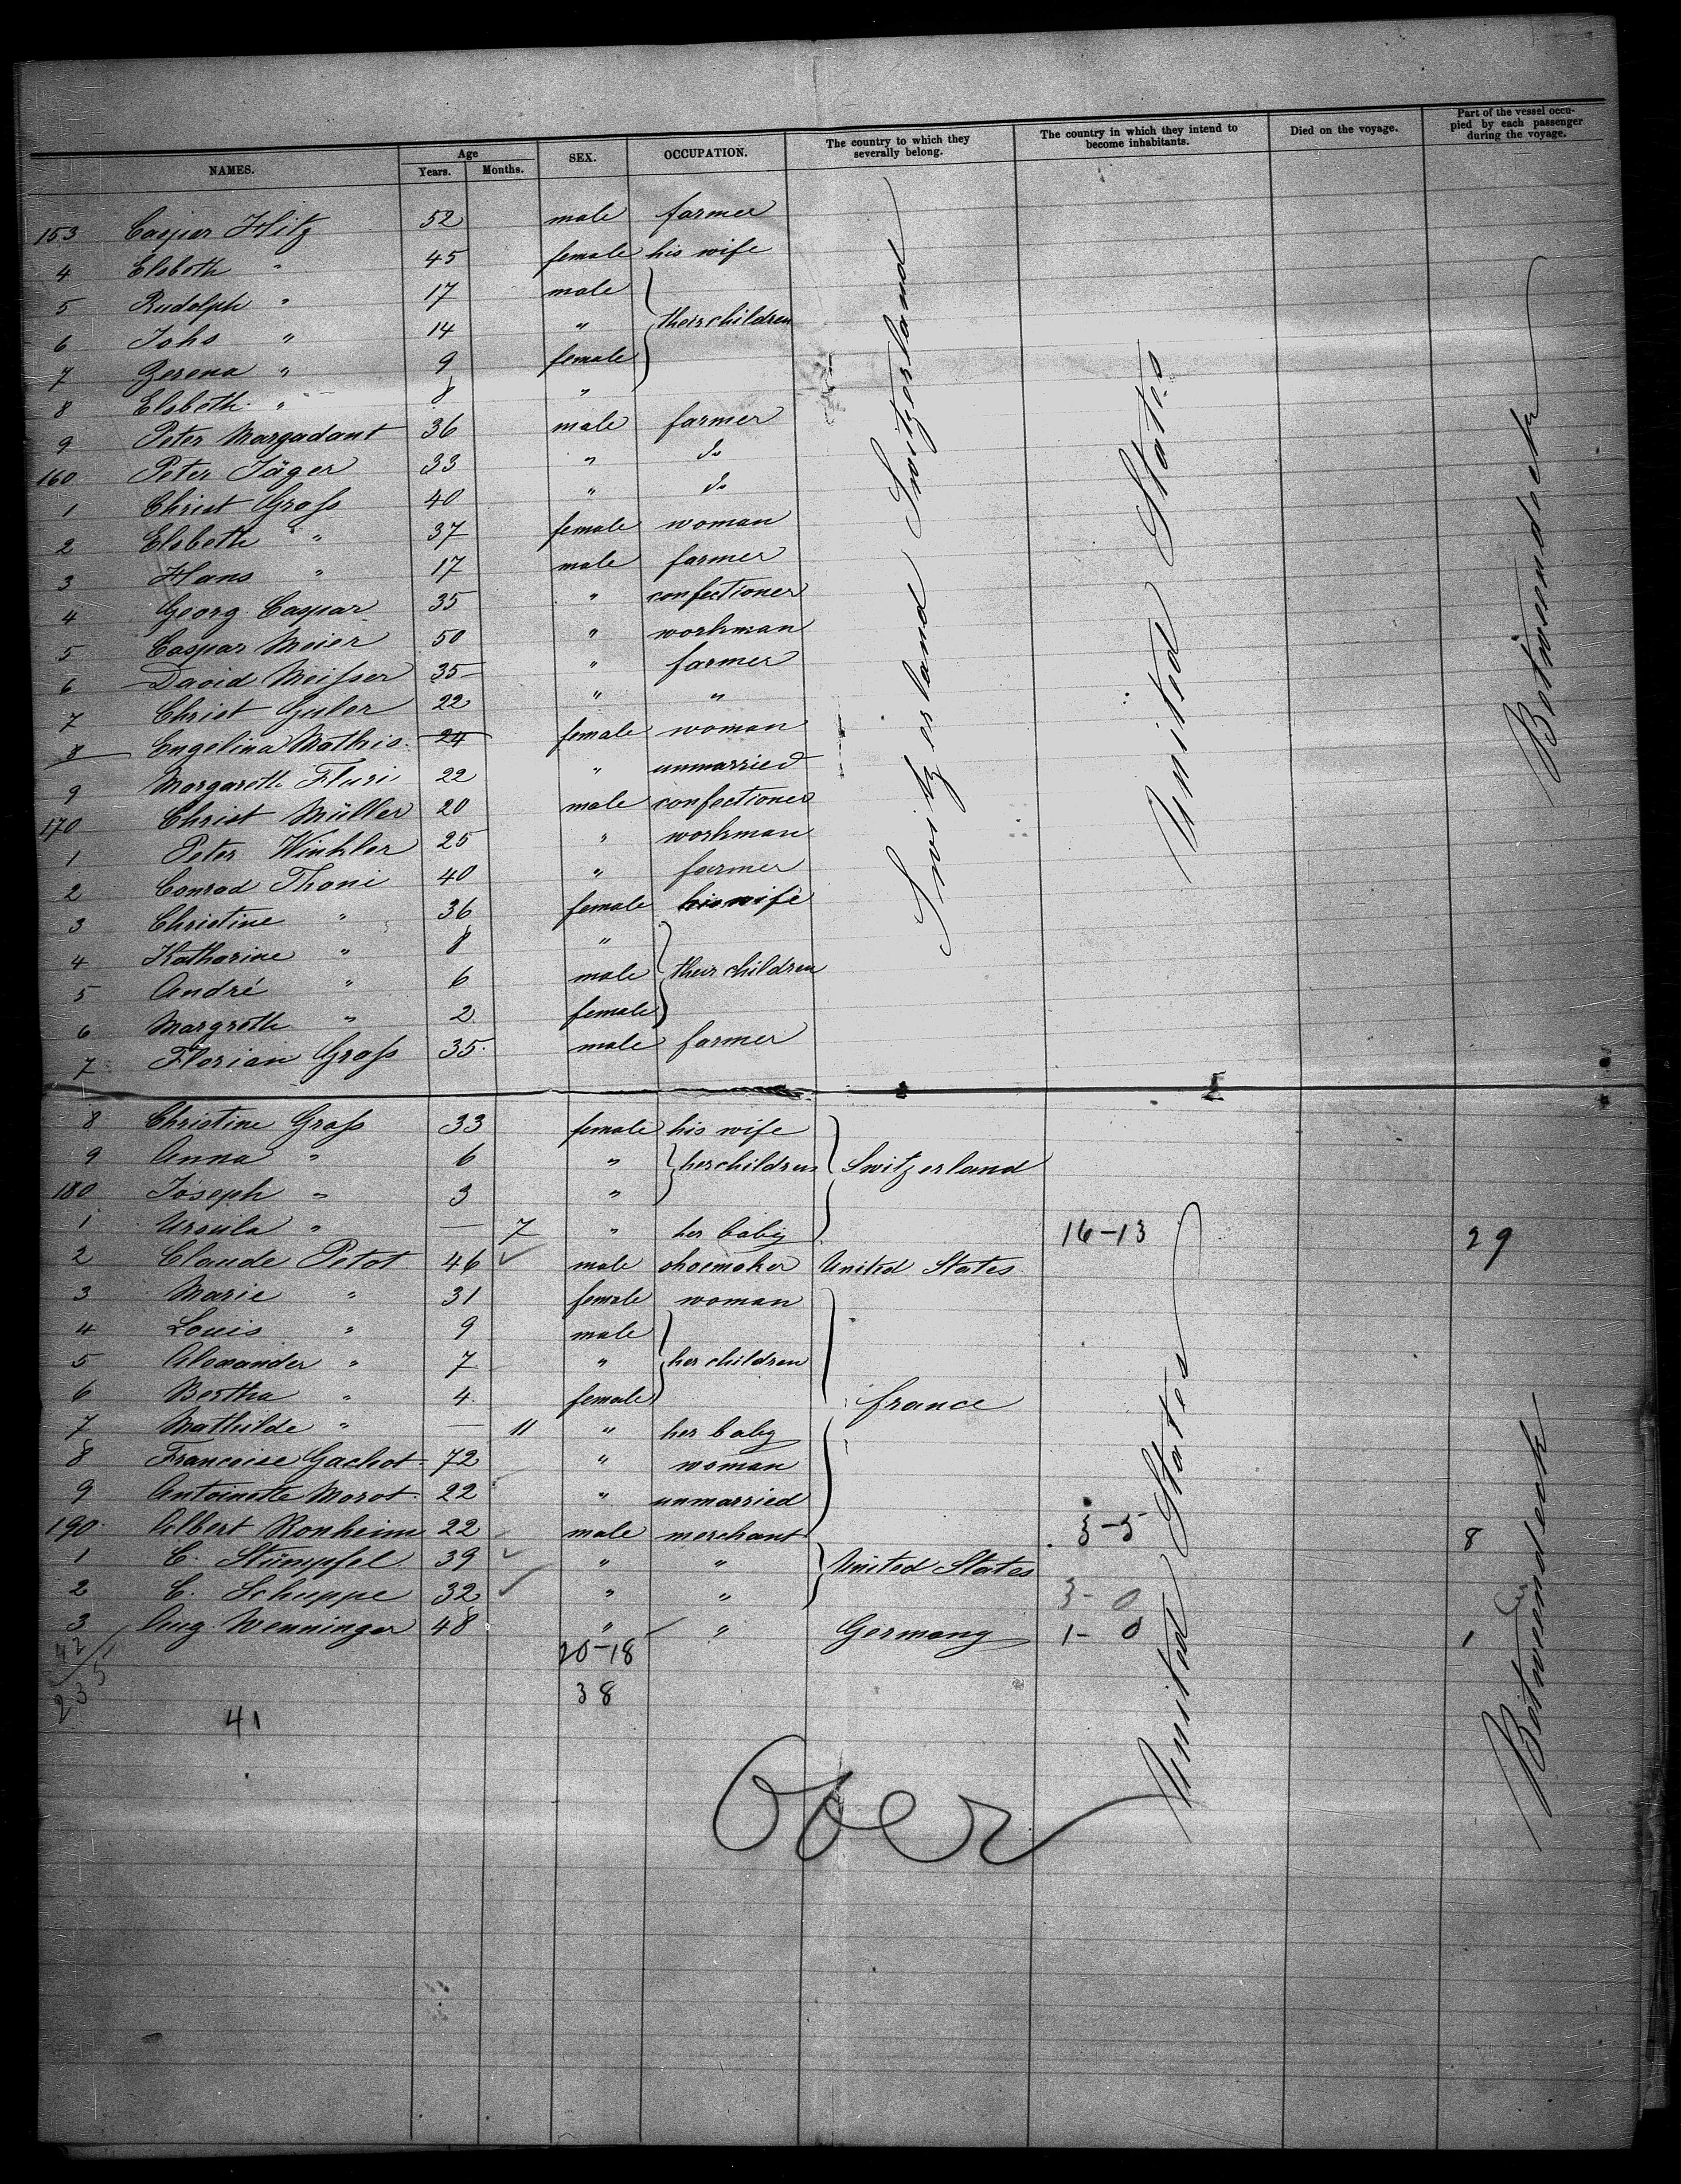 NAMES. Age Years. Months. SEX. OCCUPATION. The country to which they severally belong. The country in which they intend to become inhabitants. Died on the voyage. Part of the vessel occupied by each passenger during the voyage.
153 Caspar Hitz 52 male farmer
4 Elsbeth " 45 female his wife
5 Rudolph " 17 male
6 Johs " 14 " their children
7 Zerena " 9 female
8 Elsbeth " 8 "
9 Peter Margadant 36 male farmer
160 Peter Jäger 33 " do
1 Christ Groß 40 " do
2 Elsbeth " 37 female woman
3 Hans " 17 male farmer
4 Georg Caspar 35 " confectioner
5 Caspar Meier 50 " workman
6 David Meißer 35 " farmer
7 Christ Guler 22 " "
8 Engelina Mathis 24 female woman
9 Margareth Fluri 22 " unmarried
170 Christ Müller 20 male confectioner
1 Peter Winkler 25 " workman
2 Conrad Thoni 40 " farmer
3 Christine " 36 female his wife
4 Katharine " 8 "
5 André " 6 male their children
6 Margreth " 2 female
7 Florian Groß 35 male farmer
Switzerland Switzerland
United States
Betweendeck
8 Christine Groß 33 female his wife
9 Anna " 6 " her children Switzerland
180 Joseph " 3 "
1 Ursula " — 7 " her baby 16-13 29
2 Claude Petot 46 male shoemaker United States
3 Marie " 31 female woman
4 Louis " 9 male
5 Alexander " 7 " her children
6 Bertha " 4 female france
7 Mathilde " — 11 " her baby
8 Francoise Gachot 72 " woman
9 Antoinette Morot 22 " unmarried
190 Albert Ronheim 22 male merchant 3-5 8
1 C. Stümpfel 39 " " United States
2 C. Schuppe 32 " " 3-0
3 Aug. Wenninger 48 " " Germany 1-0 1
United States
Betweendeck
42 20-18
235 38
41
Over